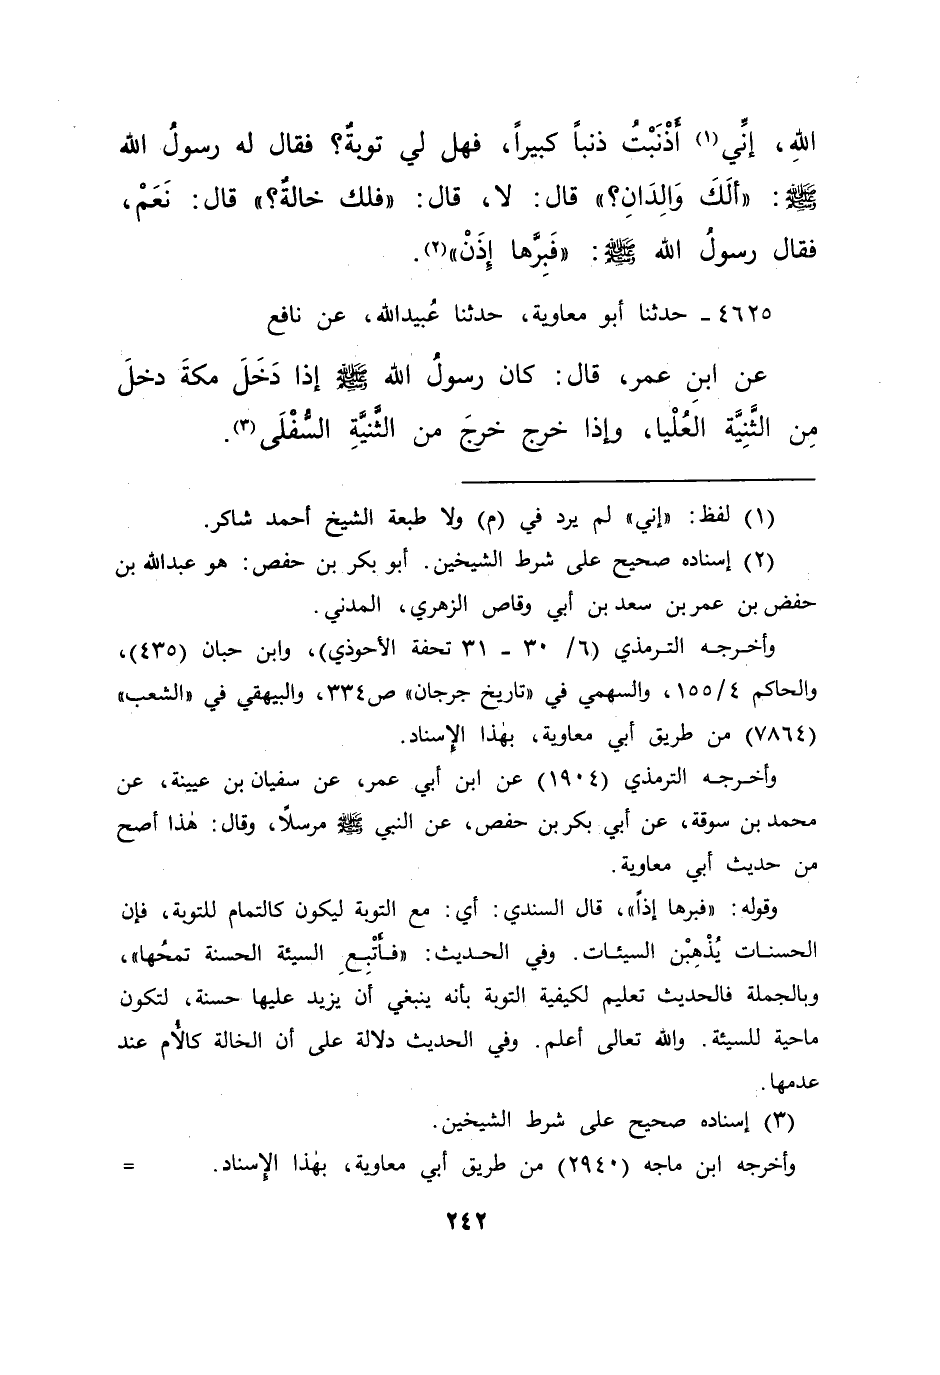 اللهِ، إنِّي(١) أَذْنَبْتُ ذنباً كبيراً، فهل لي توبةٌ؟ فقال له رسولُ الله
ﷺ: «ألَكَ وَالِدَانِ؟» قال: لا، قال: «فلك خالةٌ؟» قال: نَعَمْ،
فقال رسولُ الله ﷺ: «فَبِرَّها إِذَنْ»(٢).
٤٦٢٥ ـ حدثنا أبو معاوية، حدثنا عُبيدالله، عن نافع
عن ابنِ عمر، قال: كان رسولُ الله ﷺ إذا دَخَلَ مكةَ دخلَ
مِن الثَّنِيَّة العُلْيا، وإذا خرج خرجَ من الثَّنيَّةِ السُّفْلَى(٣).
(١) لفظ: «إني» لم يرد في (م) ولا طبعة الشيخ أحمد شاكر.
(٢) إسناده صحيح على شرط الشيخين. أبو بكر بن حفص: هو عبدالله بن
حفض بن عمر بن سعد بن أبي وقاص الزهري، المدني.
وأخرجه الترمذي (٦/ ٣٠ ـ ٣١ تحفة الأحوذي)، وابن حبان (٤٣٥)،
والحاكم ١٥٥/٤، والسهمي في «تاريخ جرجان» ص٣٣٤، والبيهقي في «الشعب»
(٧٨٦٤) من طريق أبي معاوية، بهٰذا الإسناد.
وأخرجه الترمذي (١٩٠٤) عن ابن أبي عمر، عن سفيان بن عيينة، عن
محمد بن سوقة، عن أبي بكر بن حفص، عن النبي ﷺ مرسلاً، وقال: هٰذا أصح
من حديث أبي معاوية.
وقوله: «فبرها إذاً»، قال السندي: أي: مع التوبة ليكون كالتمام للتوبة، فإن
الحسنات يُذْهِبْن السيئات. وفي الحديث: «فأَتْبِعِ السيئة الحسنة تمحُها»،
وبالجملة فالحديث تعليم لكيفية التوبة بأنه ينبغي أن يزيد عليها حسنة، لتكون
ماحية للسيئة. والله تعالى أعلم. وفي الحديث دلالة على أن الخالة كالأُم عند
عدمها.
(٣) إسناده صحيح على شرط الشيخين.
وأخرجه ابن ماجه (٢٩٤٠) من طريق أبي معاوية، بهٰذا الإسناد. =
٢٤٢